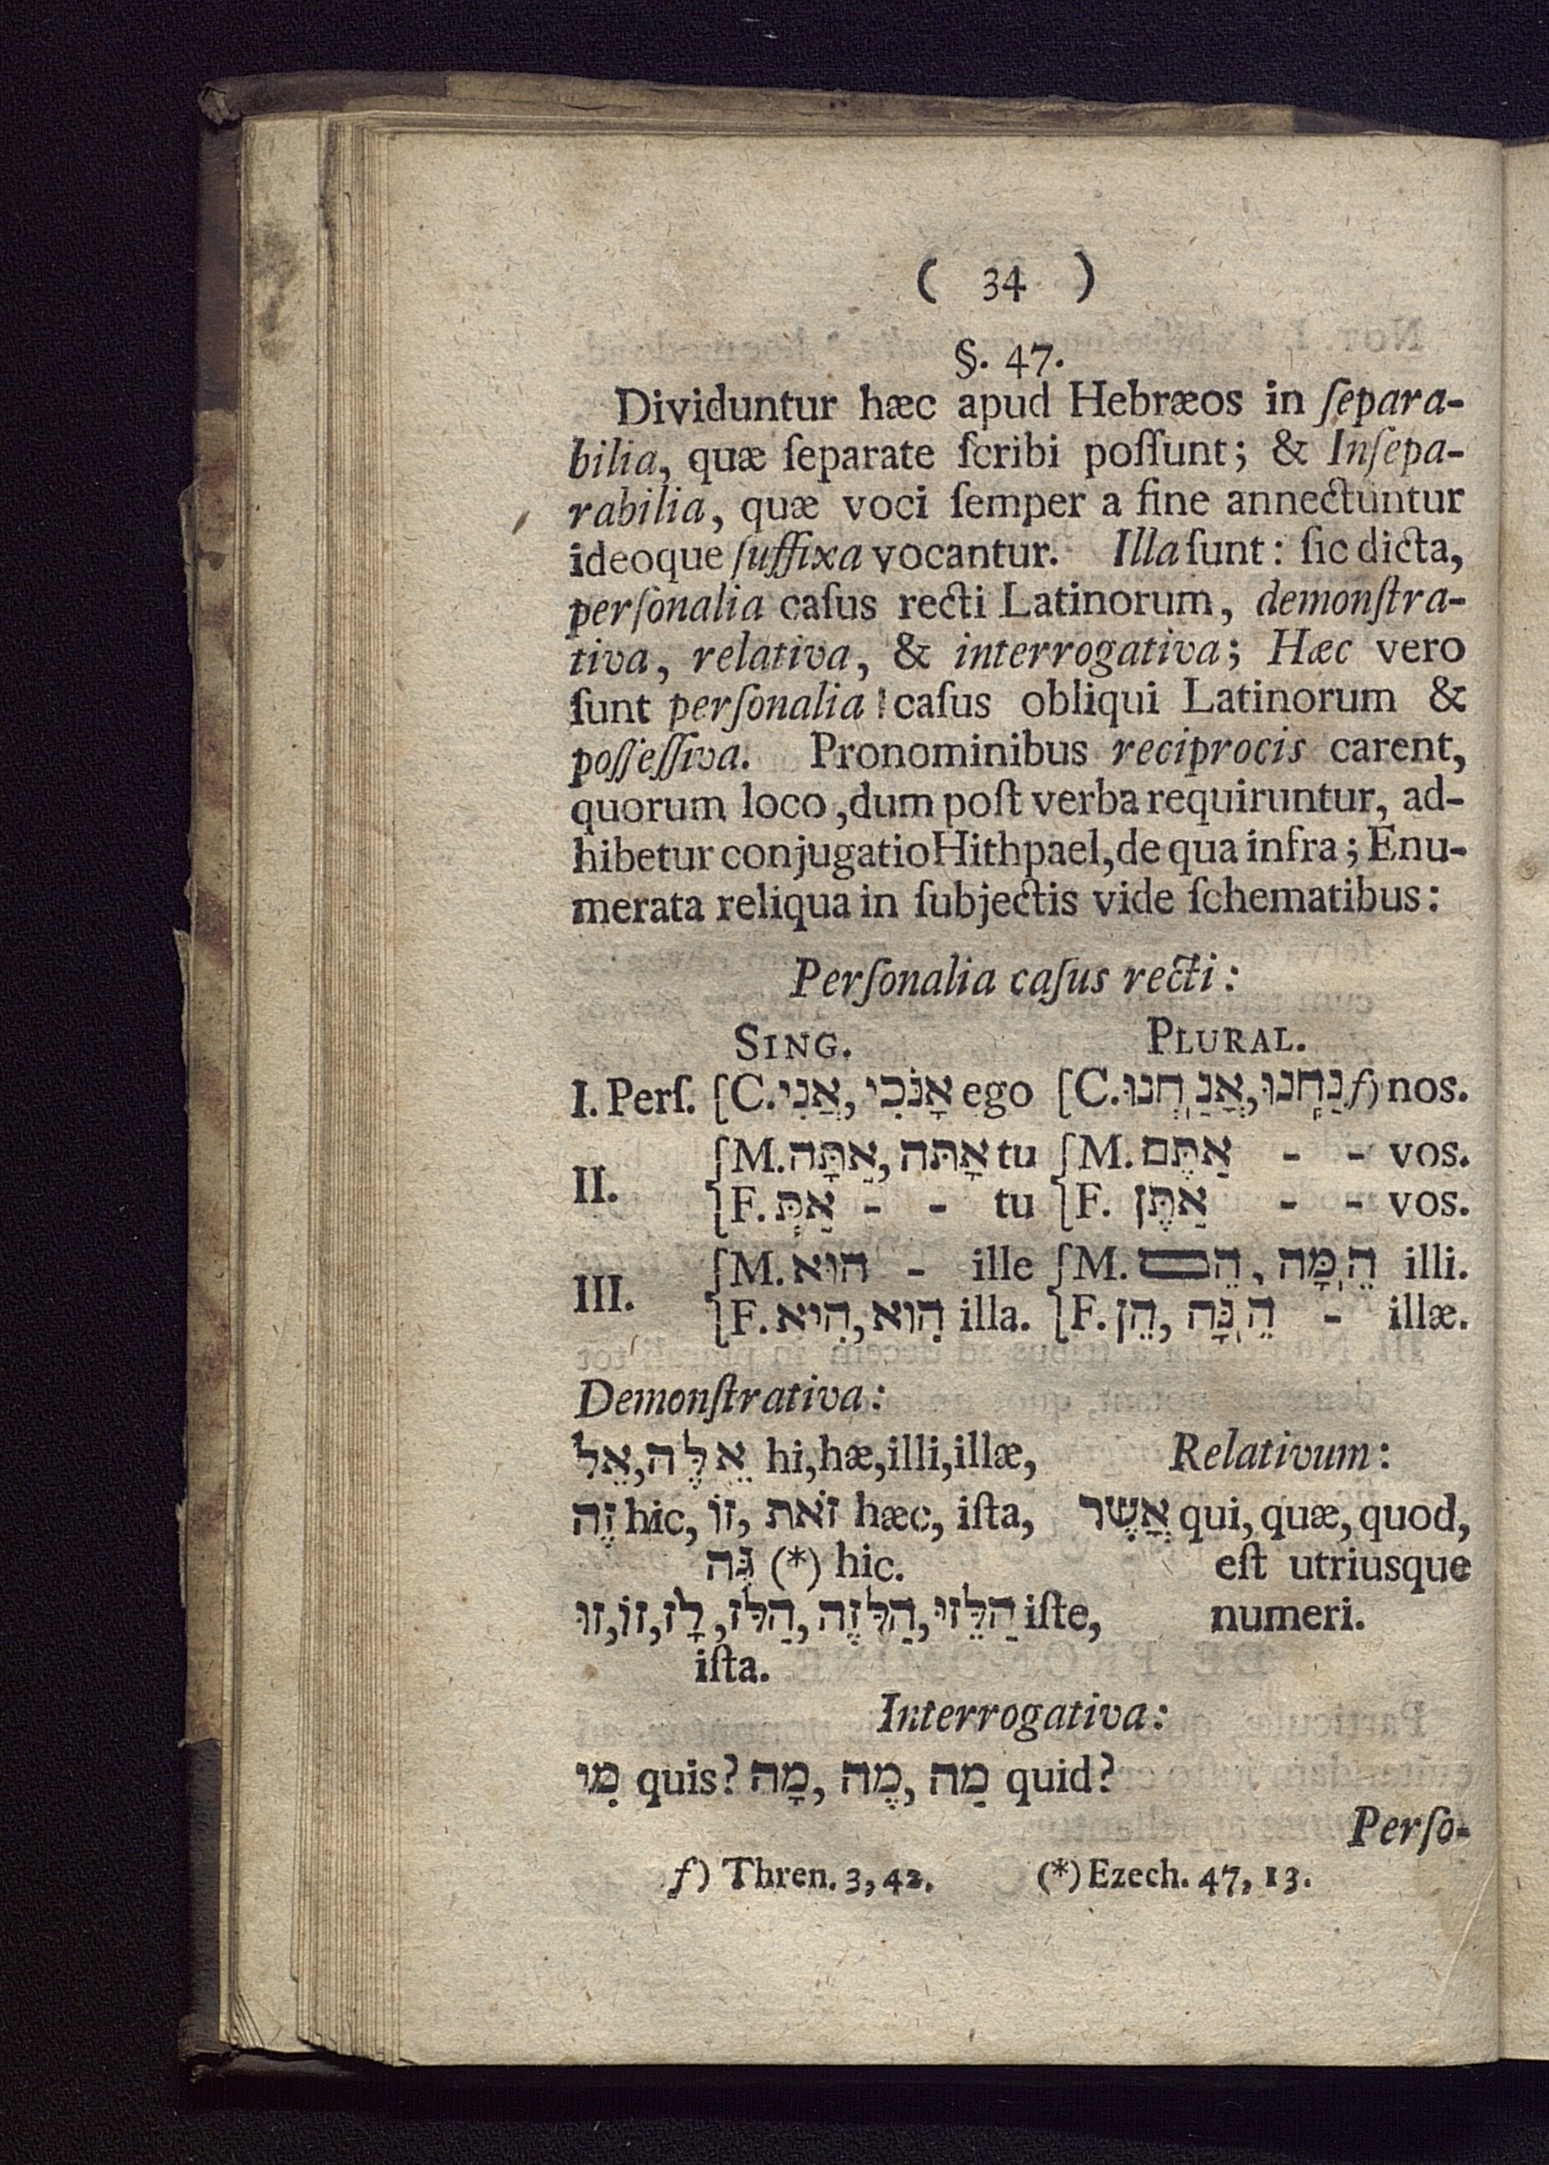 ( 34 )
§. 47.
Dividuntur hæc apud Hebræos in ſepara-
bilia, quæ ſeparate ſcribi poſſunt; & Inſepa-
rabilia, quæ voci ſemper a fine annectuntur
ideoque ſuffixa vocantur. Illa ſunt: ſic dicta,
perſonalia caſus recti Latinorum, demonſtra-
tiva, relativa, & interrogativa; Hæc vero
ſunt perſonalia caſus obliqui Latinorum &
poſſeſſiva. Pronominibus reciprocis carent,
quorum loco, dum poſt verba requiruntur, ad-
hibetur conjugatio Hithpael, de qua infra; Enu-
merata reliqua in ſubjectis vide ſchematibus:
Perſonalia caſus recti:
SING. PLURAL.
I. Perſ. [C. אֲנִי, אָנֹכִי ego [C. אֲנַחְנוּ, נַחְנוּ f) nos.
II. {M. אַתָּה, אָתּה tu {M. אַתֶּם - - vos.
{F. אַתְּ - - tu {F. אַתֶּן - - vos.
III. {M. הוּא - ille {M. הֵם, הֵמָּה illi.
{F. הִיא, הִוא illa. {F. הֵן, הֵנָּה - illæ.
Demonſtrativa:
אֵלֶּה, אֵל hi, hæ, illi, illæ, Relativum:
זֶה hic, זוֹ, זֹאת hæc, iſta, אֲשֶׁר qui, quæ, quod,
גֵּה (*) hic. eſt utriusque
הַלֵּזוּ, הַלָּזֶה, הַלָּז, לָז, זוֹ, זוּ iſte, numeri.
iſta.
Interrogativa:
מִי quis? מָה, מֶה, מַה quid?
Perſo-
f) Thren. 3, 42. (*) Ezech. 47, 13.